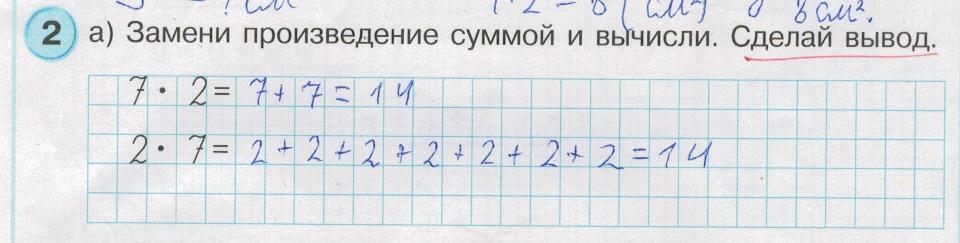 8 см².
2 а) Замени произведение суммой и вычисли. Сделай вывод.
7 · 2 = 7 + 7 = 14
2 · 7 = 2 + 2 + 2 + 2 + 2 + 2 + 2 = 14